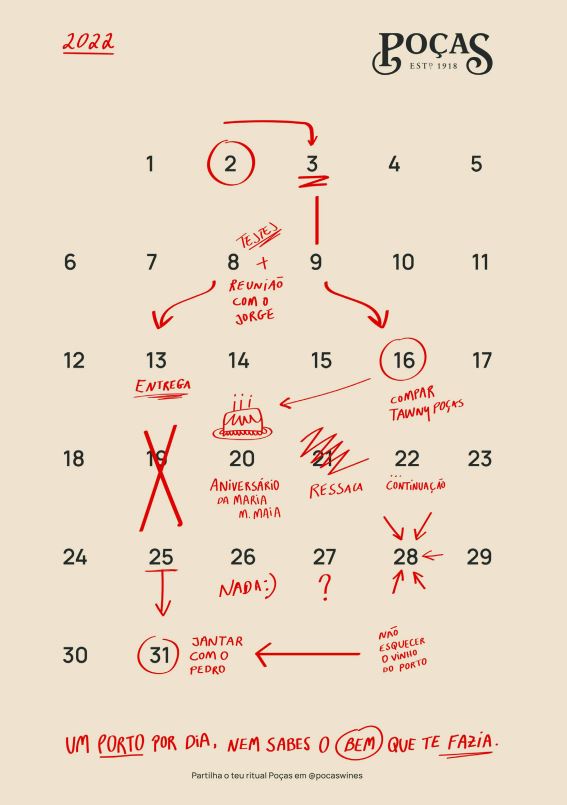 2022
POÇAS
ESTD 1918
1 2 3 4 5
TESTES
6 7 8 + 9 10 11
REUNIÃO
COM O
JORGE
12 13 14 15 16 17
ENTREGA
COMPAR
TAWNY POÇAS
18 19 20 21 22 23
ANIVERSÁRIO
DA MARIA
M. MAIA
RESSACA
... CONTINUAÇÃO
24 25 26 27 28 29
NADA :)
?
30 31
JANTAR
COM O
PEDRO
NÃO
ESQUECER
O VINHO
DO PORTO
UM PORTO POR DIA, NEM SABES O BEM QUE TE FAZIA.
Partilha o teu ritual Poças em @pocaswines